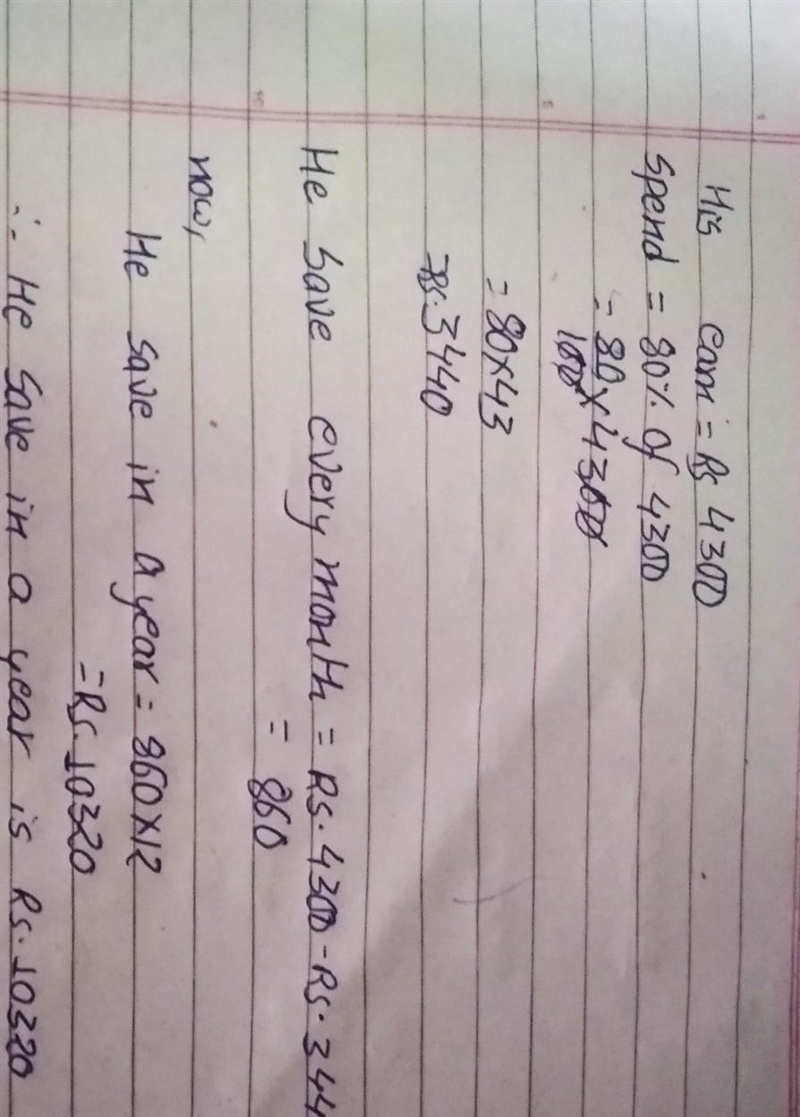 His earn = Rs 4300
Spend = 80% of 4300
= 80/100 × 4300
= 80×43
=Rs.3440
He save every month = Rs.4300-Rs.344
= 860
now,
He save in a year = 860×12
=Rs.10320
∴ He save in a year is Rs.10320